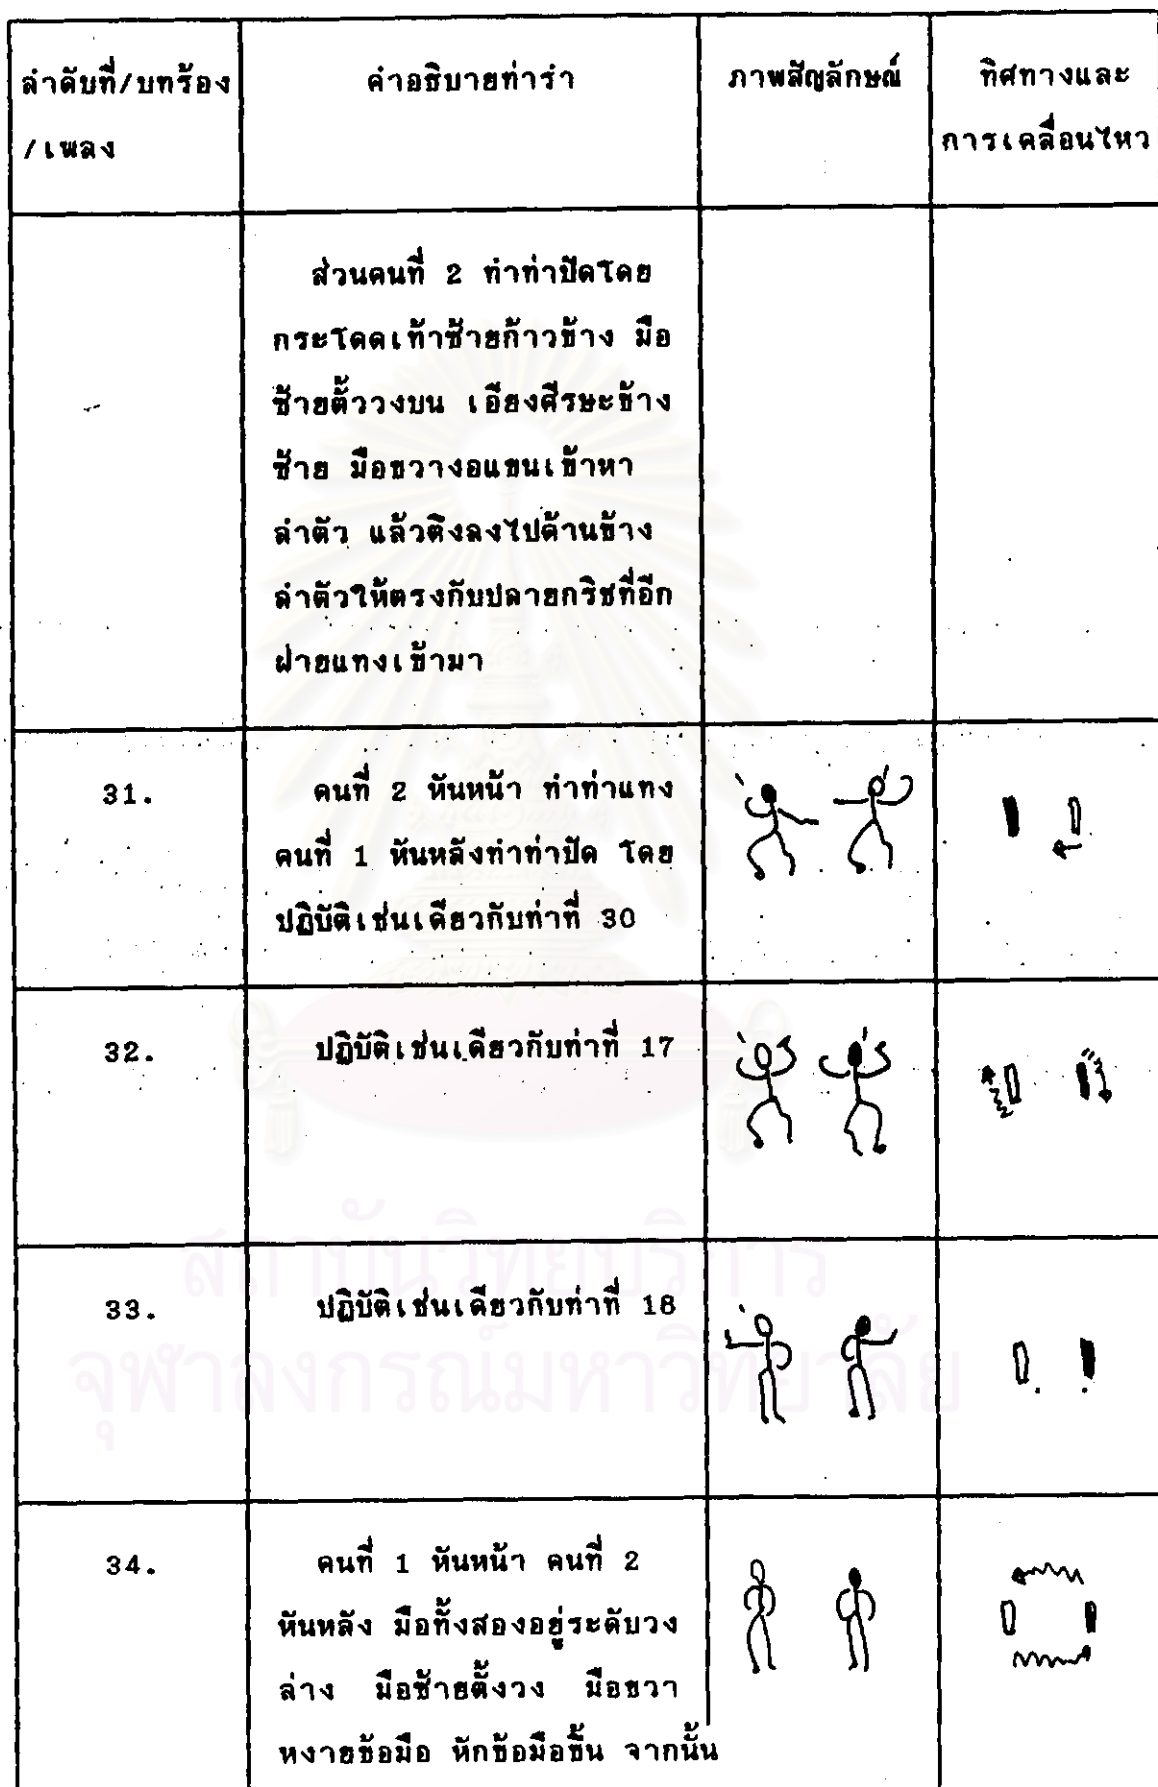 ลำดับที่/บทร้อง
/เพลง
คำอธิบายท่ารำ
ภาพสัญลักษณ์
ทิศทางและ
การเคลื่อนไหว
ส่วนคนที่ 2 ทำท่าปัดโดย
กระโดดเท้าซ้ายก้าวข้าง มือ
ซ้ายตั้ววงบน เอียงศีรษะข้าง
ซ้าย มือขวางอแขนเข้าหา
ลำตัว แล้วตึงลงไปด้านข้าง
ลำตัวให้ตรงกับปลายกริชที่อีก
ฝ่ายแทงเข้ามา
31.
คนที่ 2 หันหน้า ทำท่าแทง
คนที่ 1 หันหลังทำท่าปัด โดย
ปฏิบัติเช่นเดียวกับท่าที่ 30
32.
ปฏิบัติเช่นเดียวกับท่าที่ 17
33.
ปฏิบัติเช่นเดียวกับท่าที่ 18
34.
คนที่ 1 หันหน้า คนที่ 2
หันหลัง มือทั้งสองอยู่ระดับวง
ล่าง มือซ้ายตั้งวง มือขวา
หงายข้อมือ หักข้อมือขึ้น จากนั้น
สถาบันวิทยบริการ
จุฬาลงกรณ์มหาวิทยาลัย